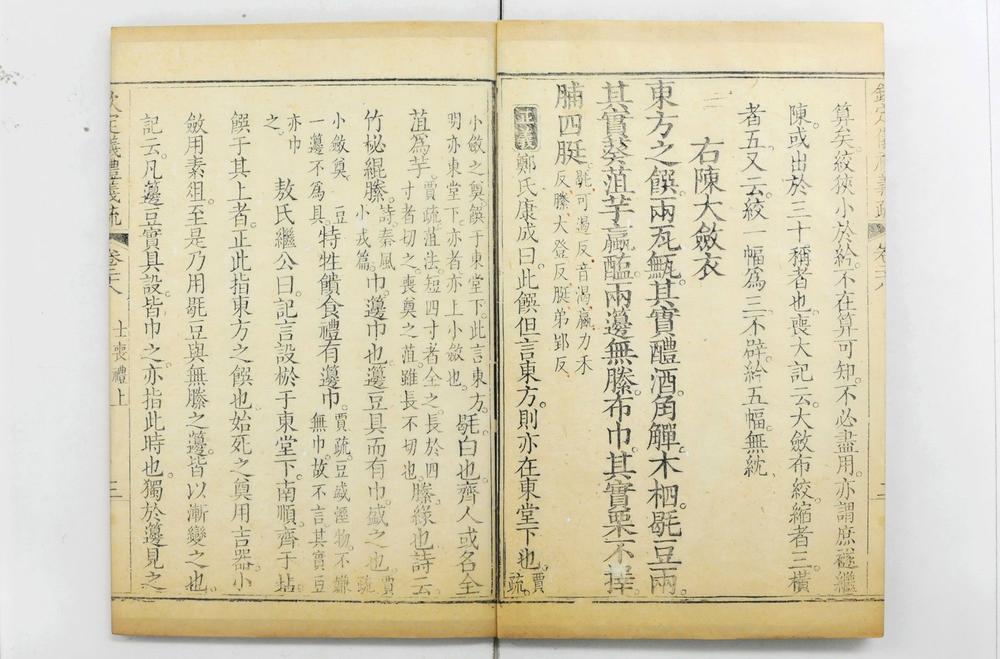 算矣絞狹小於紟不在算可知不必盡用亦謂庶襚繼
陳或出於三十稱者也喪大記云大斂布絞縮者三橫
者五又云絞一幅爲三不辟紟五幅無紞
右陳大斂衣
東方之饌兩瓦甒其實醴酒角觶木柶毼豆兩
其實葵菹芋蠃醢兩籩無縢布巾其實栗不擇
脯四脡
毼可渴反音渴蠃力禾
反縢大登反脡弟郢反
正義鄭氏康成曰此饌但言東方則亦在東堂下也
賈
疏
小斂之奠饌于東堂下此言東方
明亦東堂下亦者亦上小斂也
毼白也齊人或名全
菹爲芋
賈疏菹法短四寸者全之長於四
寸者切之喪奠之菹雖長不切也
縢緣也詩云
竹柲緄縢
詩秦風
小戎篇
巾籩巾也籩豆具而有巾盛之也
賈
疏
小斂奠一豆
一籩不爲具
特牲饋食禮有籩巾
賈疏豆盛溼物不嫌
無巾故不言其實豆
亦巾
之
敖氏繼公曰記言設棜于東堂下南順齊于坫
饌于其上者正此指東方之饌也始死之奠用吉器小
斂用素俎至是乃用毼豆與無縢之籩皆以漸變之也
記云凡籩豆實具設皆巾之亦指此時也獨於籩見之
欽定儀禮義疏
卷二十八
士喪禮上
二